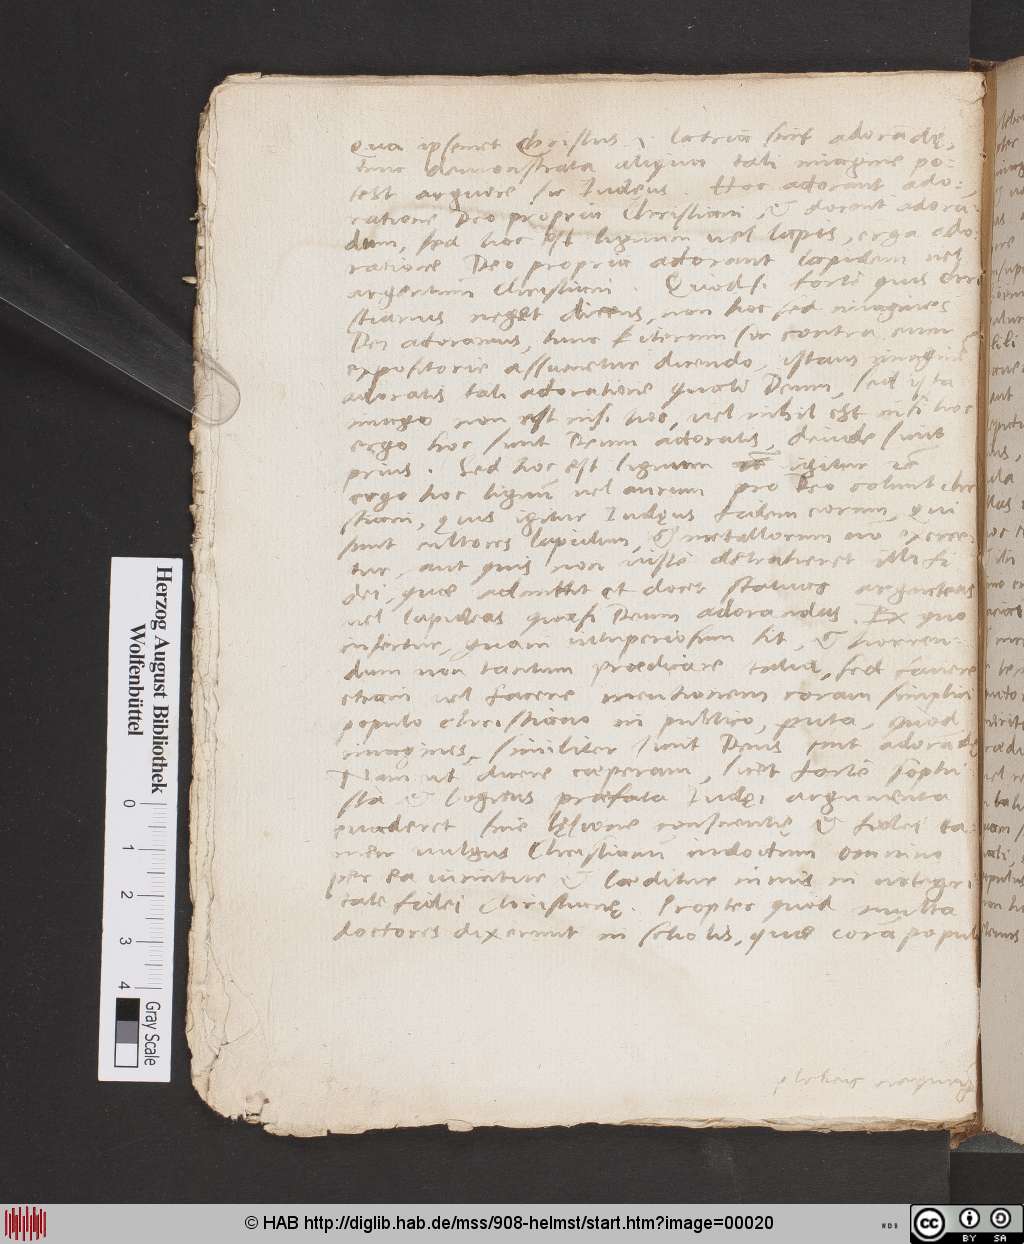 qua ipsemet Christus .i. latria sint adorādę,
tunc demonstrata aliqua tali imagine po-
test arguere sic Iudęus. Hoc adorant ado-
ratione Deo propria Christiani, & docent adorā-
dum, sed hoc est lignum vel lapis, ergo ado-
ratione Deo propria adorant lapidem vel
argentum Christiani. Quodsi forte quis Chri
stianus neget dicens, non hoc sed imagines
Dei adoramus, tunc iterum sic contra eum
expositorie assumetur dicendo, istam imaginē
adoratis tali adoratione quali Deum, sed ista
imago non est nisi hoc, vel nihil est nisi hoc
ergo hoc sicut Deum adoratis, deinde sicut
prius. Sed hoc est lignum igitur
ergo hoc lignū vel aurum pro Deo colunt chri
stiani, quis igitur Iudęus fidem eorum, qui
sunt cultores lapidum, & metallorum nō
tur, aut quis non iuste detraheret illi fi
dei, quæ admittit et docet statuas argenteas
vel lapideas quasi Deum adorandas. Ex quo
infertur, quam vituperiosum sit, & horren-
dum non tantum prædicare talia, sed favere
etiam vel facere mentionem coram simplici
populo christiano in publico, puta, quod
imagines, similiter sicut Deus sint adorādę
Nam ut dicere cæperam, licet forte sophi
sta & logicus præfata Iudęi argumenta
evaderet sine lęsione conscientię & fidei ta-
men vulgus Christianū indoctum omnino
per ea viciatur & læditur nimis in integri
tate fidei Christianę. Propter quod multa
doctores dixerunt in scholis, quæ corā populo
© HAB http://diglib.hab.de/mss/908-helmst/start.htm?image=00020
WDB
CC BY SA
Herzog August Bibliothek
Wolfenbüttel
0 1 2 3 4
Gray Scale